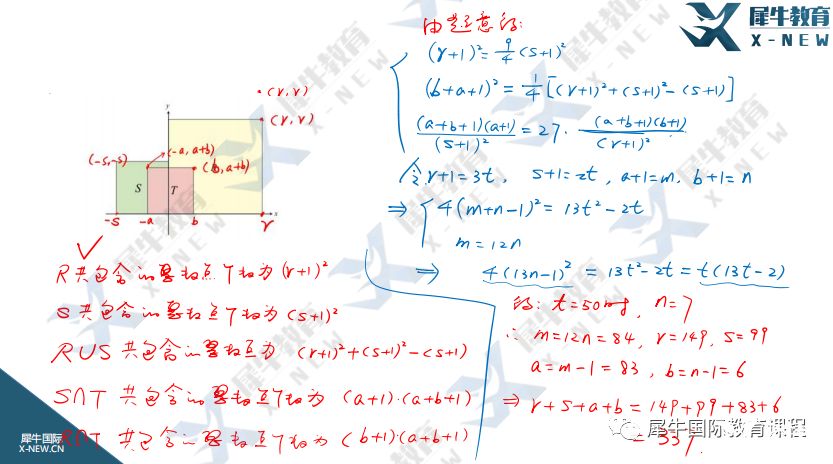 犀牛教育
X-NEW
由题意的:
(r+1)²=9/4(s+1)²
(b+a+1)²=1/4[(r+1)²+(s+1)²-(s+1)]
(a+b+1)(a+1)/(s+1)²=27·(a+b+1)(b+1)/(r+1)²
令r+1=3t, s+1=2t, a+1=m, b+1=n
⇒ 4(m+n-1)²=13t²-2t
m=12n
⇒ 4(13n-1)²=13t²-2t=t(13t-2)
的: t=50时, n=7
∴ m=12n=84, r=149, s=99
a=m-1=83, b=n-1=6
⇒ r+s+a+b=149+99+83+6
=337
y
(r,r)
(r,r)
(-s,-s)
(-a,a+b)
(b,a+b)
S
T
-s
-a
b
r
x
R共包含的整数点个数为(r+1)²
S共包含的整数点个数为(s+1)²
R∪S共包含的整数点为(r+1)²+(s+1)²-(s+1)
S∩T共包含的整数点个数为(a+1)·(a+b+1)
R∩T共包含的整数点个数为(b+1)·(a+b+1)
犀牛国际
X-NEW.CN
犀牛国际教育课程